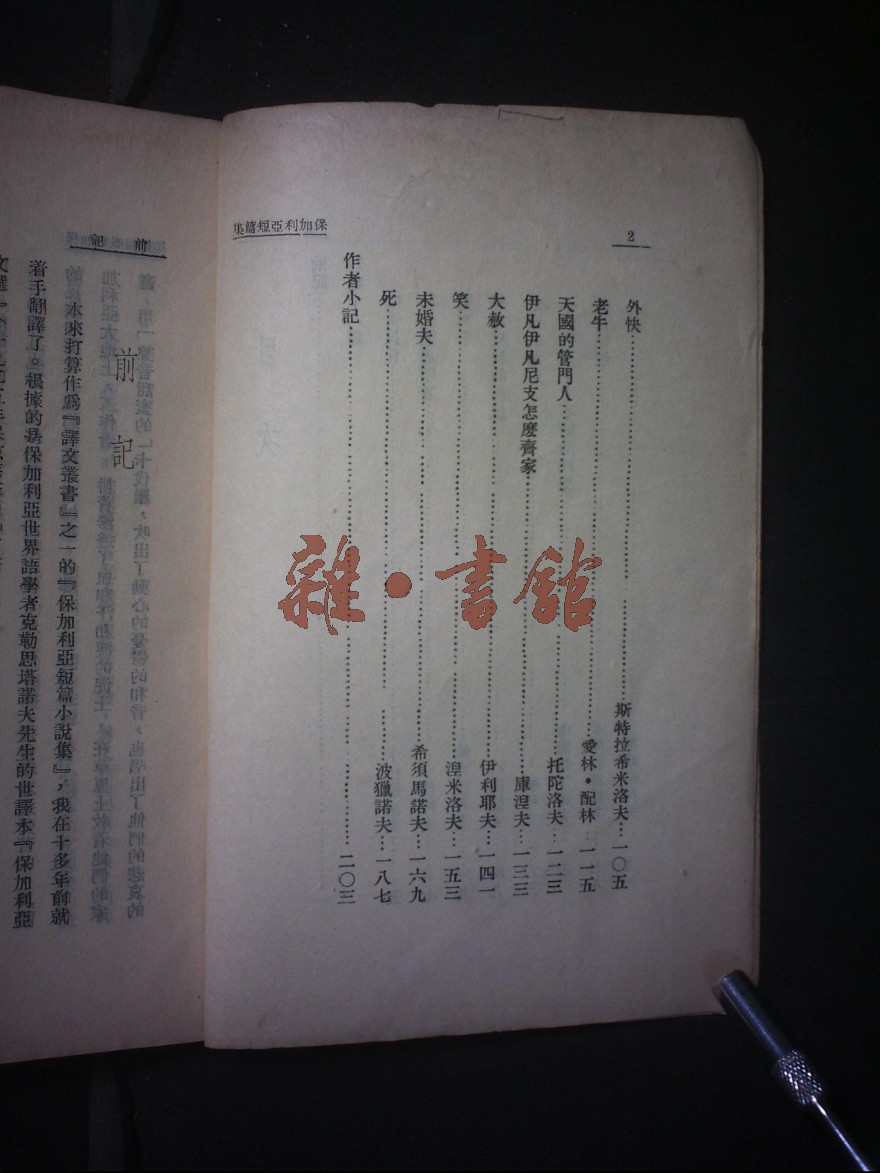 2
保加利亞短篇集
外快……斯特拉希米洛夫…一〇五
老牛……愛林•配林…一一五
天國的管門人……托陀洛夫…一二三
伊凡伊凡尼支怎麽齊家……庫湼夫…一三三
大赦……伊利耶夫…一四一
笑……湼米洛夫…一五三
未婚夫……希須馬諾夫…一六九
死……波獵諾夫…一八七
作者小記……二〇三
雜•書館
前記
前記
本來打算作爲『譯文叢書』之一的『保加利亞短篇小說集』，我在十多年前就
着手翻譯了。根據的是保加利亞世界語學者克勒思塔諾夫先生的世譯本『保加利亞